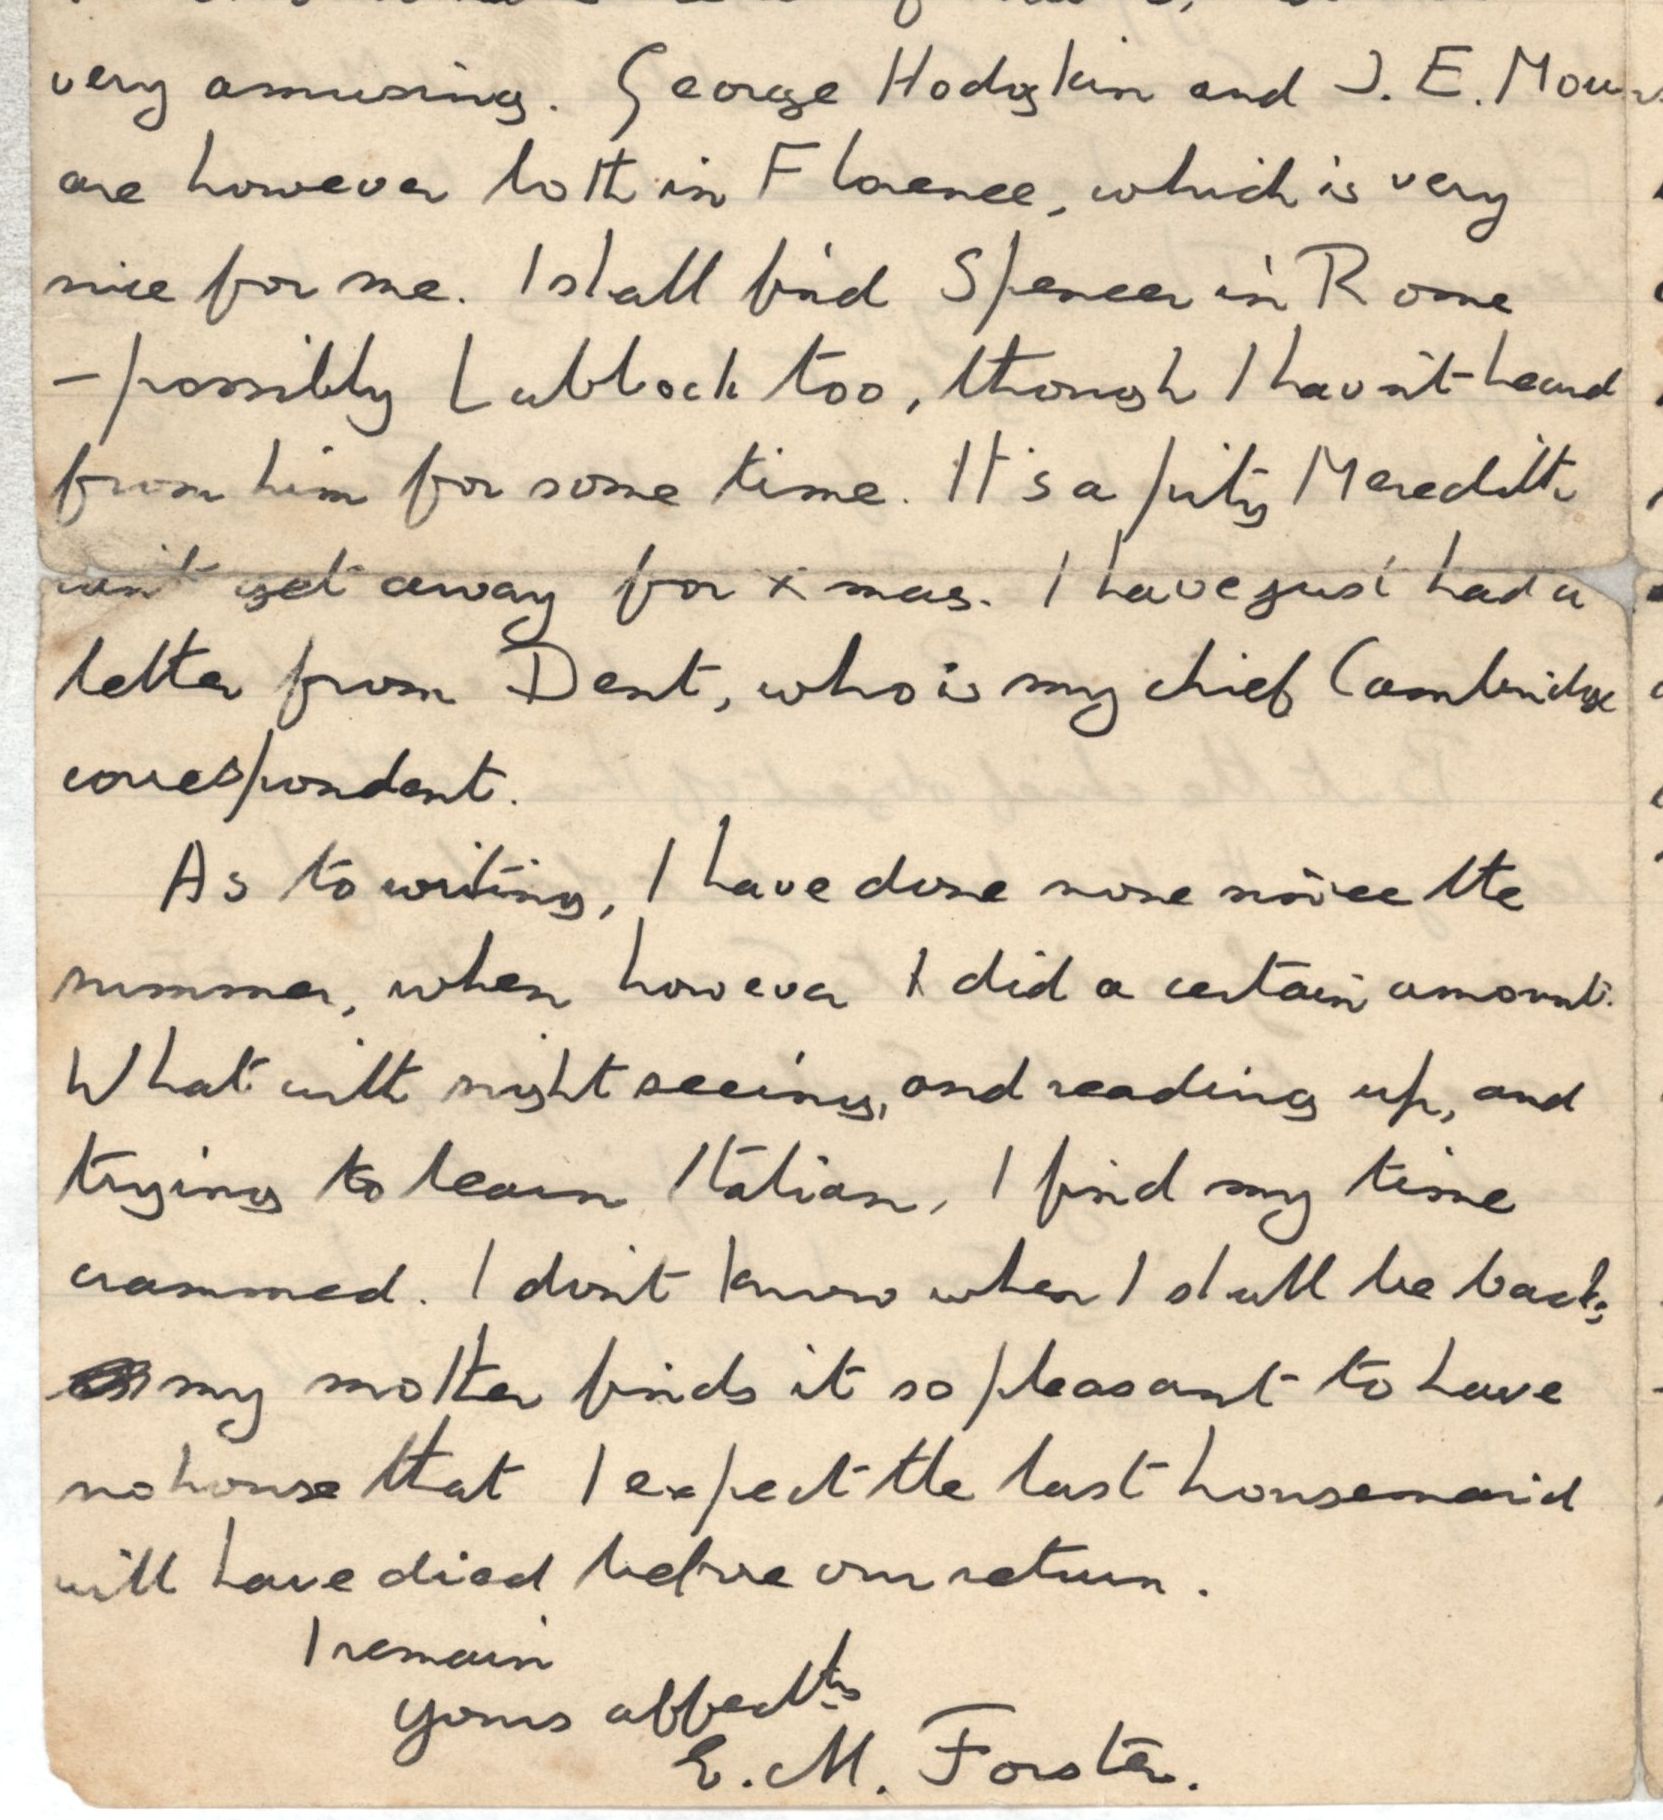 very amusing. George Hodgkin and J. E. Mou
are however both in Florence, which is very
nice for me. I shall find Spencer in Rome
– possibly Lubbock too, though I havn't heard
from him for some time. It's a pity Meredith
can't get away for xmas. I have just had a
letter from Dent, who is my chief Cambridge
correspondent.
As to writing, I have done none since the
summer, when however I did a certain amount.
What with sight seeing, and reading up, and
trying to learn Italian, I find my time
crammed. I don't know when I shall be back;
my mother finds it so pleasant to have
no house that I expect the last housemaid
will have died before our return.
I remain
yours affectly
E. M. Forster.